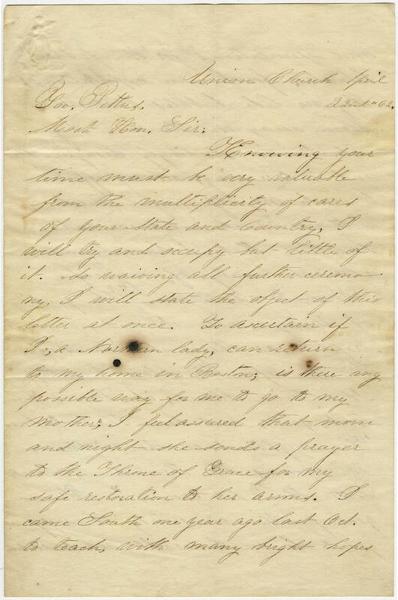 Union Church April
Gov. Pettus. 22nd 62.
Most Hon. Sir:
Knowing your
time must be very valuable
from the multiplicity of cares
of your State and Country, I
will try and occupy but little of
it. So waiving all further ceremo
ny, I will state the object of this
letter at once. To ascertain if
I, a Northern lady, can return
to my home in Boston; is there any
possible way for me to go to my
Mother; I feel assured that morn
and night she sends a prayer
to the Throne of Grace for my
safe restoration to her arms. I
came South one year ago last Oct.
to teach, with many bright hopes